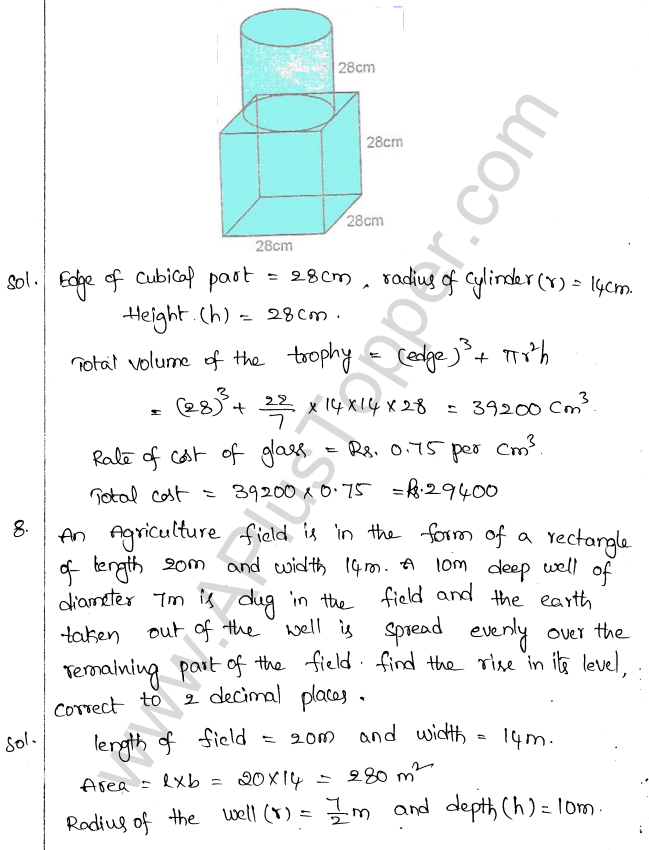 28cm
28cm
28cm
28cm
Sol. Edge of cubical part = 28cm, radius of cylinder (r) = 14cm.
Height (h) = 28cm.
Total volume of the trophy = (edge)³ + πr²h
= (28)³ + 22/7 × 14 × 14 × 28 = 39200 cm³.
Rate of cost of glass = Rs. 0.75 per cm³.
Total cost = 39200 × 0.75 = Rs. 29400
8. An Agriculture field is in the form of a rectangle
of length 20m and width 14m. A 10m deep well of
diameter 7m is dug in the field and the earth
taken out of the well is spread evenly over the
remaining part of the field. find the rise in its level,
correct to 2 decimal places.
Sol. length of field = 20m and width = 14m.
Area = l×b = 20×14 = 280 m²
Radius of the well (r) = 7/2 m and depth (h) = 10m.
www.APlusTopper.com